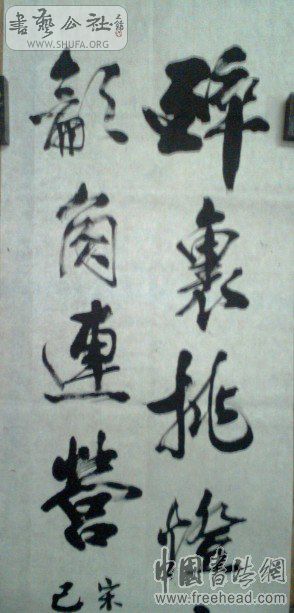 書藝公社
WWW.SHUFA.ORG
醉裏挑燈
龡角連營
宋
己
中國書法網
www.freehead.com